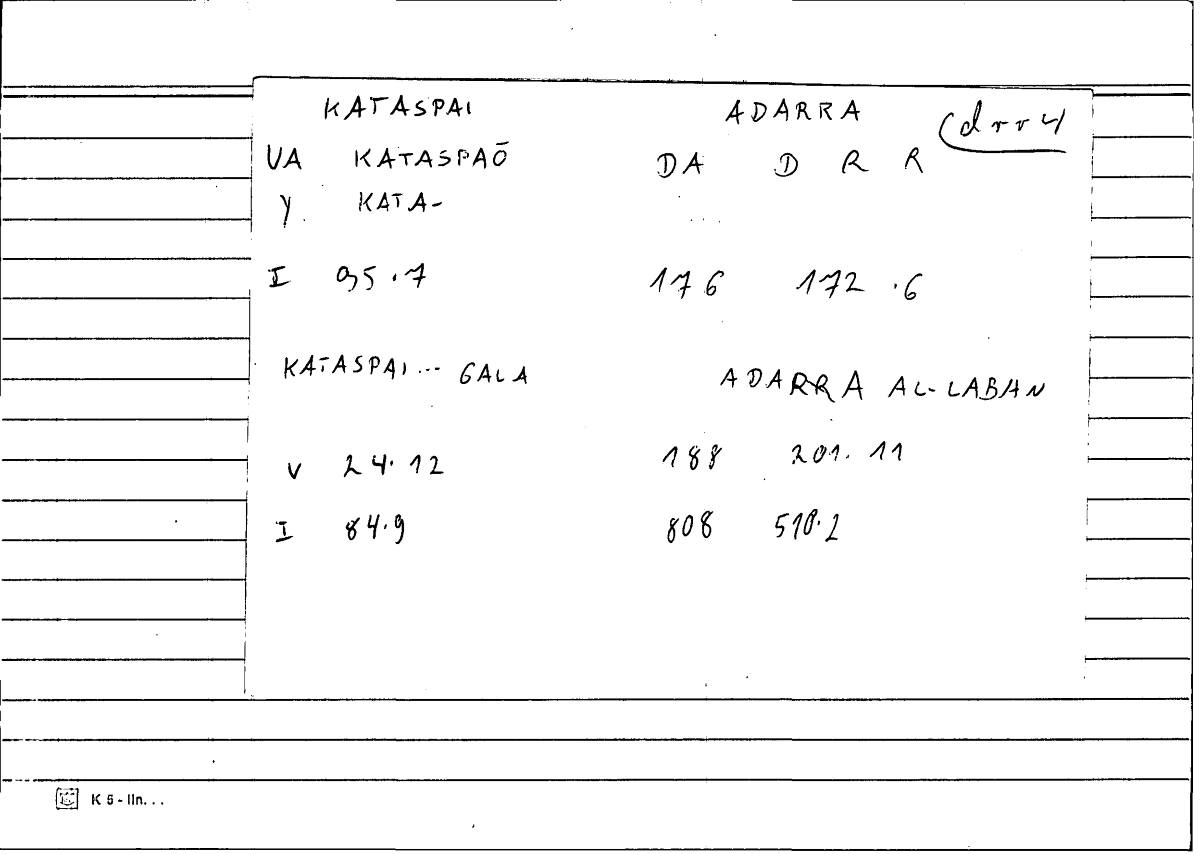 KATASPAI ADARRA (drr 4
VA KATASPAŌ DA D R R
Y. KATA- ...
I 95.7 176 172.6
KATASPAI... GALA ADARRA AL-LABAN
V 24.12 188 201.11
I 84.9 808 510.2
K 5 - lin...